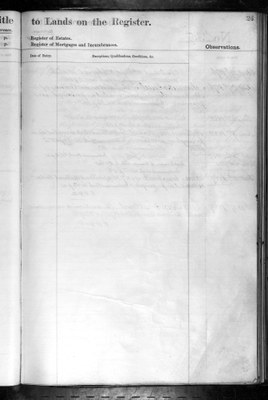 itle
to Lands on the Register.
24
Register of Estates.
Register of Mortgages and Incumbrances.
Observations.
Date of Entry.
Exceptions, Qualifications, Conditions, &c.